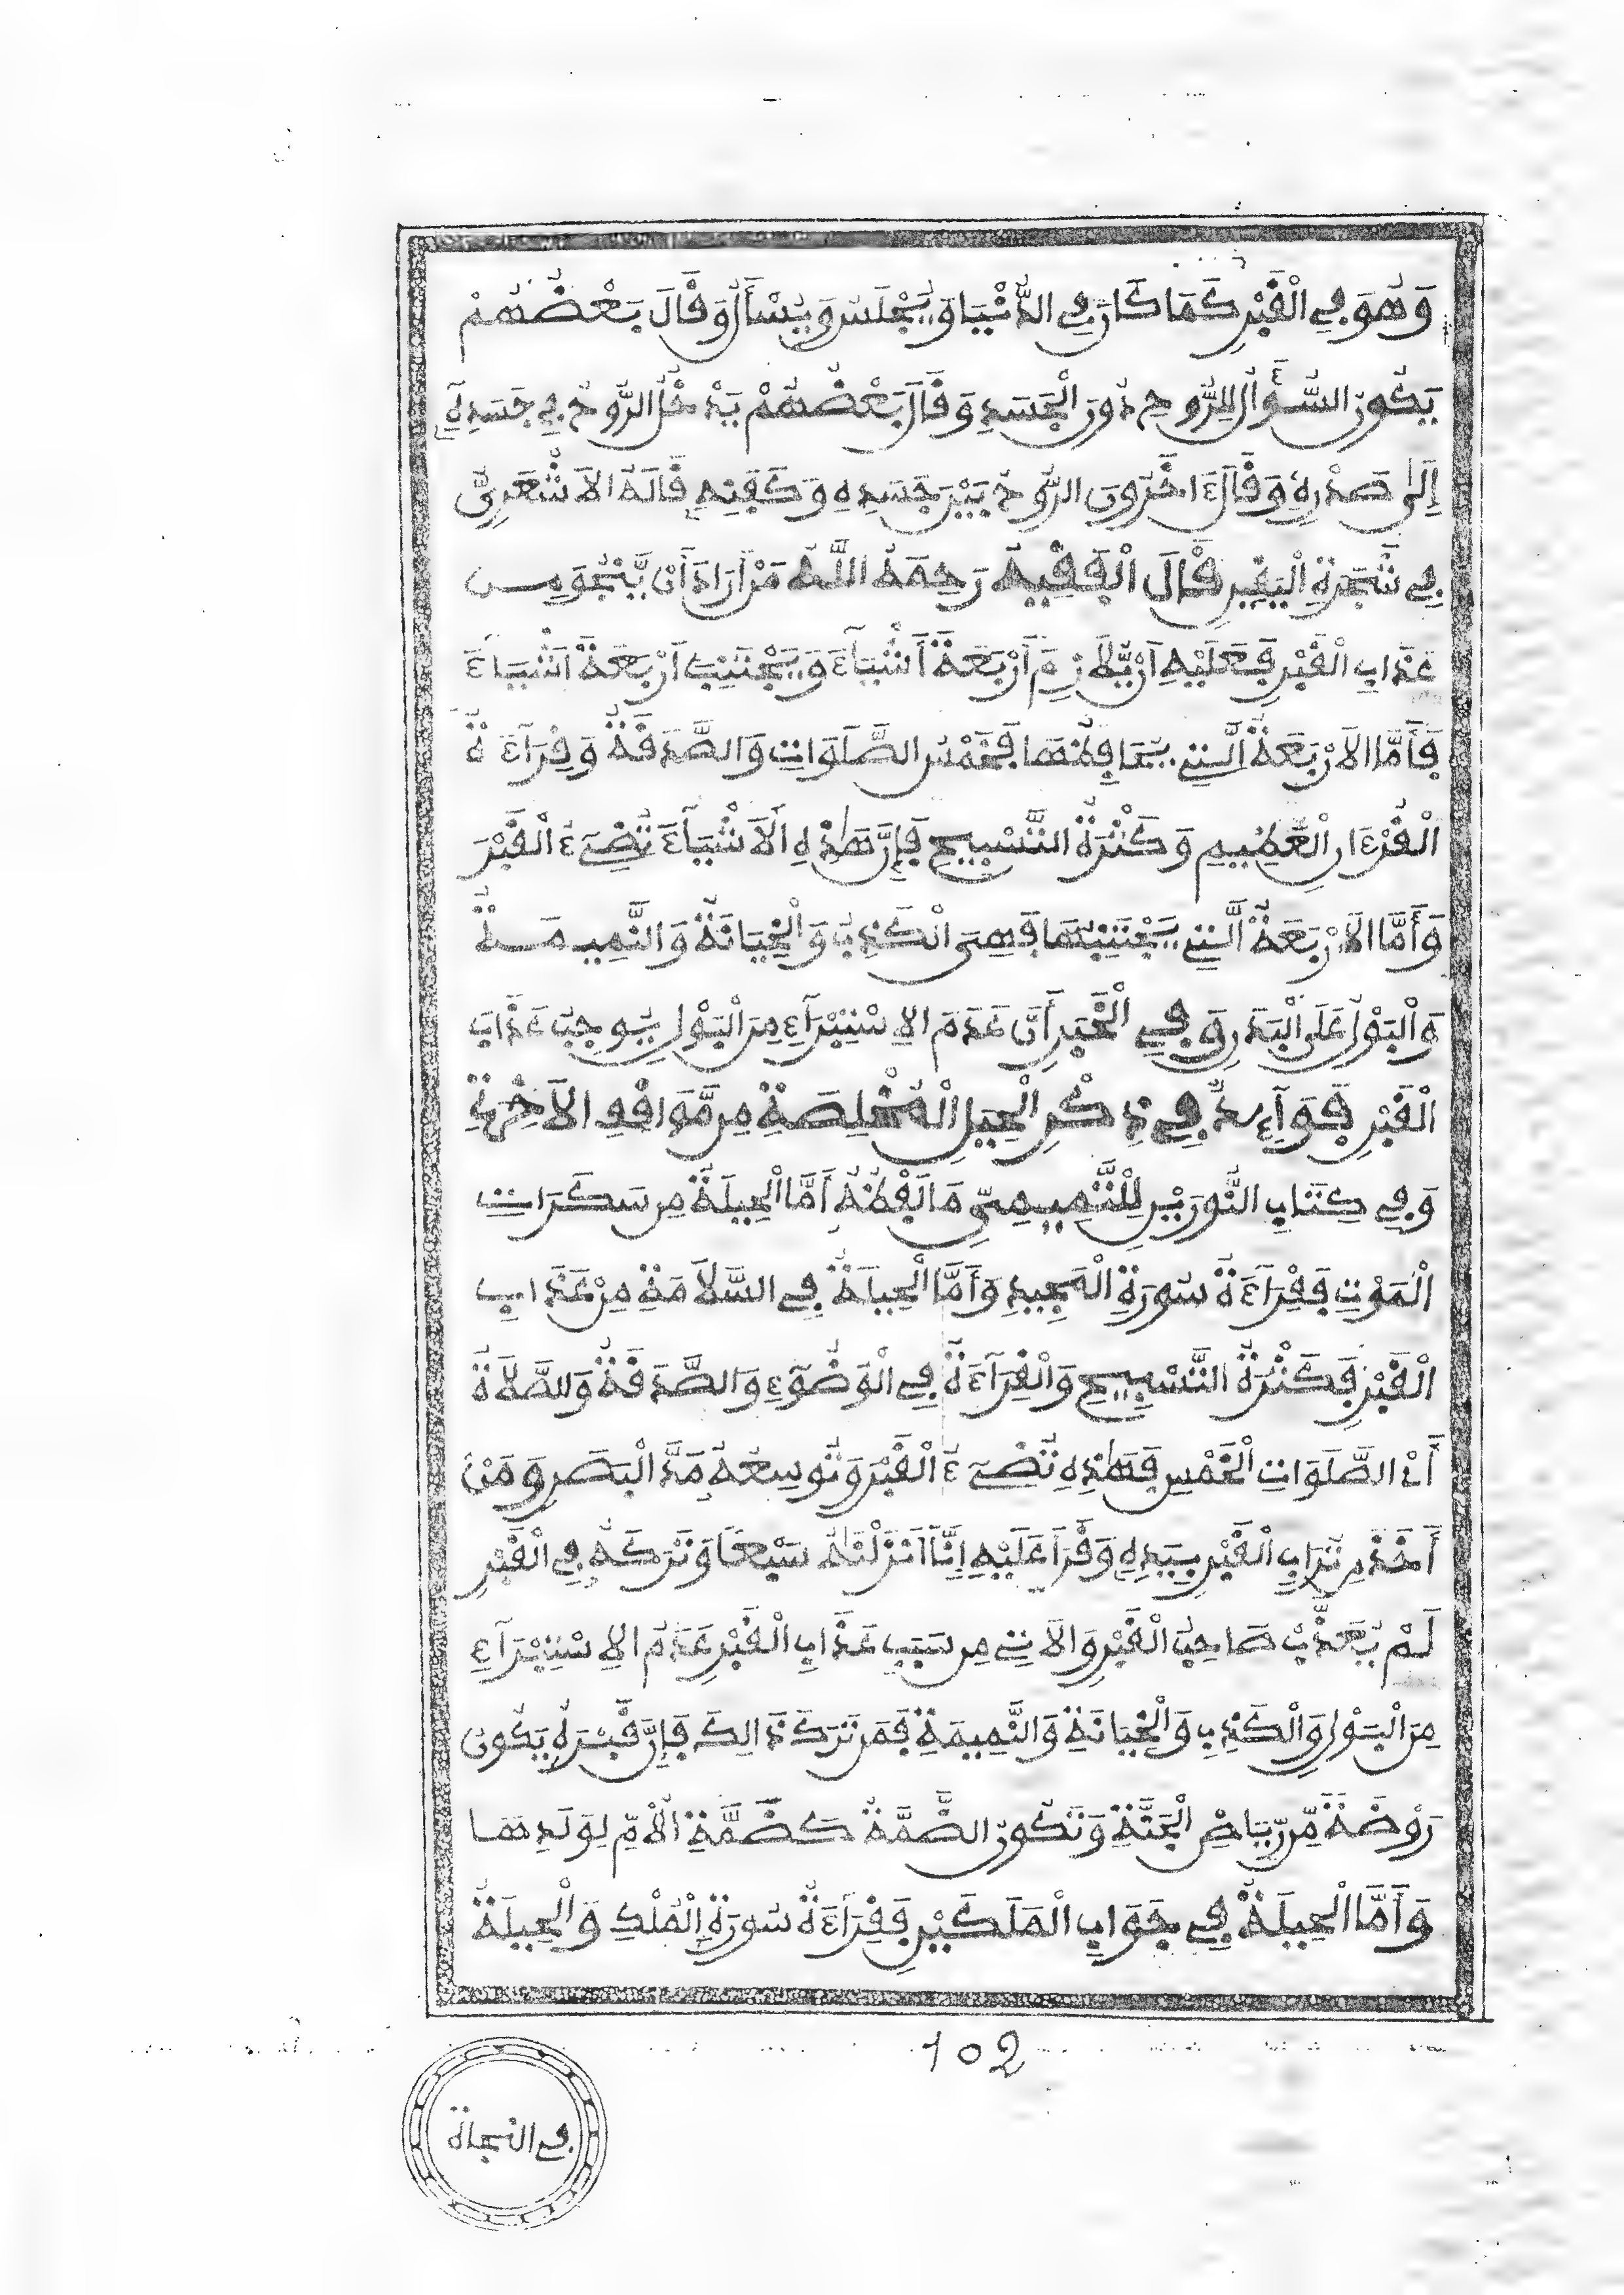 وَهُوَ فِي الْقَبْرِ كَمَا كَانَ فِي الدُّنْيَا وَيُجْلَسُ وَيُسْأَلُ وَقَالَ بَعْضُهُمْ
يَكُونُ السُّؤَالُ لِلرُّوحِ دُونَ الْجَسَدِ وَقَالَ بَعْضُهُمْ يَدْخُلُ الرُّوحُ فِي جَسَدِهِ
إِلَى صَدْرِهِ وَقَالَ ءَاخَرُونَ الرُّوحُ بَيْنَ جَسَدِهِ وَكَفَنِهِ قَالَهُ الَاشْعَرِيُّ
فِي شَجَرَةِ الْيَقِينِ قَالَ الْفَقِيهُ رَحِمَهُ اللَّهُ مَنْ أَرَادَ أَنْ يَّنْجُوَ مِنْ
عَذَابِ الْقَبْرِ فَعَلَيْهِ أَنْ يُّلَازِمَ أَرْبَعَةَ أَشْيَآءَ وَيَجْتَنِبَ أَرْبَعَةَ أَشْيَآءَ
فَأَمَّا الَارْبَعَةُ الَّتِي يُحَافِظُهَا فَخَمْسُ الصَّلَوَاتِ وَالصَّدَقَةُ وَقِرَآءَةُ
الْقُرْءَانِ الْعَظِيمِ وَكَثْرَةُ التَّسْبِيحِ فَإِنَّ هَٰذِهِ الَاشْيَآءَ تُضِيٓءُ الْقَبْرَ
وَأَمَّا الَارْبَعَةُ الَّتِي يَجْتَنِبُهَا فَهِيَ الْكَذِبُ وَالْخِيَانَةُ وَالنَّمِيمَةُ
وَالْبَوْلُ عَلَى الْبَدَنِ وَفِي الْخَبَرِ أَنَّ عَدَمَ الِاسْتِبْرَآءِ مِنَ الْبَوْلِ يُوجِبُ عَذَابَ
الْقَبْرِ فَوَآئِدُ فِي ذِكْرِ الْحِيَلِ الْمُخْلِصَةِ مِن مَّوَاقِفِ الَاخِرَةِ
وَفِي كِتَابِ النُّورَيْنِ لِلتَّمِيمِيِّ مَا لَفْظُهُ أَمَّا الْحِيلَةُ مِن سَكَرَاتِ
الْمَوْتِ فَقِرَآءَةُ سُورَةِ الْمَجِيدِ وَأَمَّا الْحِيلَةُ فِي السَّلَامَةِ مِنْ عَذَابِ
الْقَبْرِ فَكَثْرَةُ التَّسْبِيحِ وَالْقِرَآءَةُ فِي الْوُضُوٓءِ وَالصَّدَقَةُ وَالصَّلَاةُ
أَيْ الصَّلَوَاتِ الْخَمْسِ فَهَٰذِهِ تُضِيٓءُ الْقَبْرَ وَتُوسِعُهُ مَدَّ الْبَصَرِ وَمَنْ
أَخَذَ مِن تُرَابِ الْقَبْرِ بِيَدِهِ وَقَرَأَ عَلَيْهِ إِنَّا أَنزَلْنَٰهُ سَبْعًا وَتَرَكَهُ فِي الْقَبْرِ
لَمْ يُعَذَّبْ صَاحِبُ الْقَبْرِ وَالَاتِي مِن سَبَبِ عَذَابِ الْقَبْرِ عَدَمُ الِاسْتِبْرَآءِ
مِنَ الْبَوْلِ وَالْكَذِبِ وَالْخِيَانَةِ وَالنَّمِيمَةِ فَمَن تَرَكَ ذَالِكَ فَإِنَّ قَبْرَهُ يَكُونُ
رَوْضَةً مِّن رِّيَاضِ الْجَنَّةِ وَتَكُونُ الضَّمَّةُ كَضَمَّةِ الُامِّ لِوَلَدِهَا
وَأَمَّا الْحِيلَةُ فِي جَوَابِ الْمَلَكَيْنِ فَقِرَآءَةُ سُورَةِ الْمُلْكِ وَالْحِيلَةُ
102
في النجاة